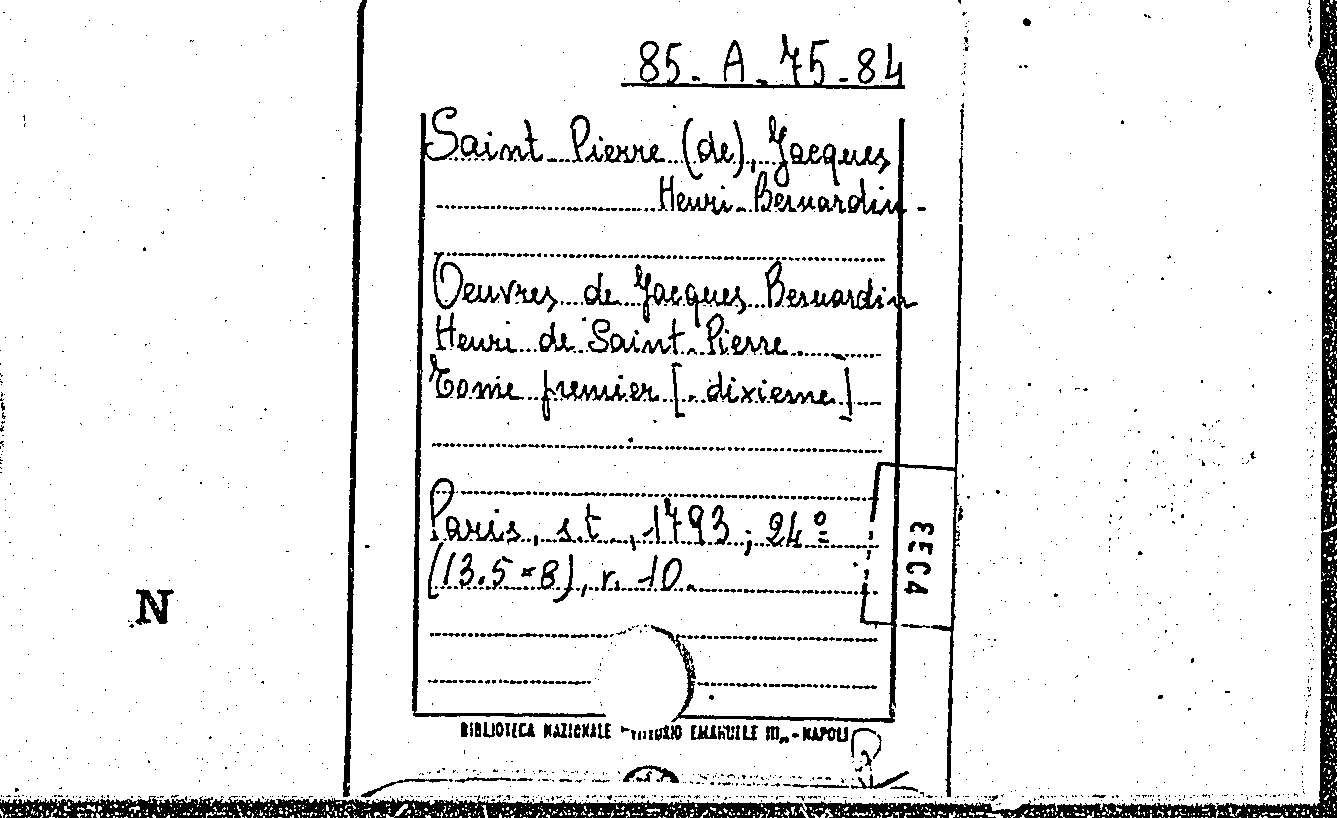 85. A. 75-84
Saint Pierre (de), Jacques
Henri-Bernardin-
Oeuvres de Jacques Bernardin
Henri de Saint-Pierre
Tome premier [-dixieme]
Paris, s.t., 1793; 24º
(13.5×8), v. 10.
N
BIBLIOTECA NAZIONALE VITTORIO EMANUELE III - NAPOLI